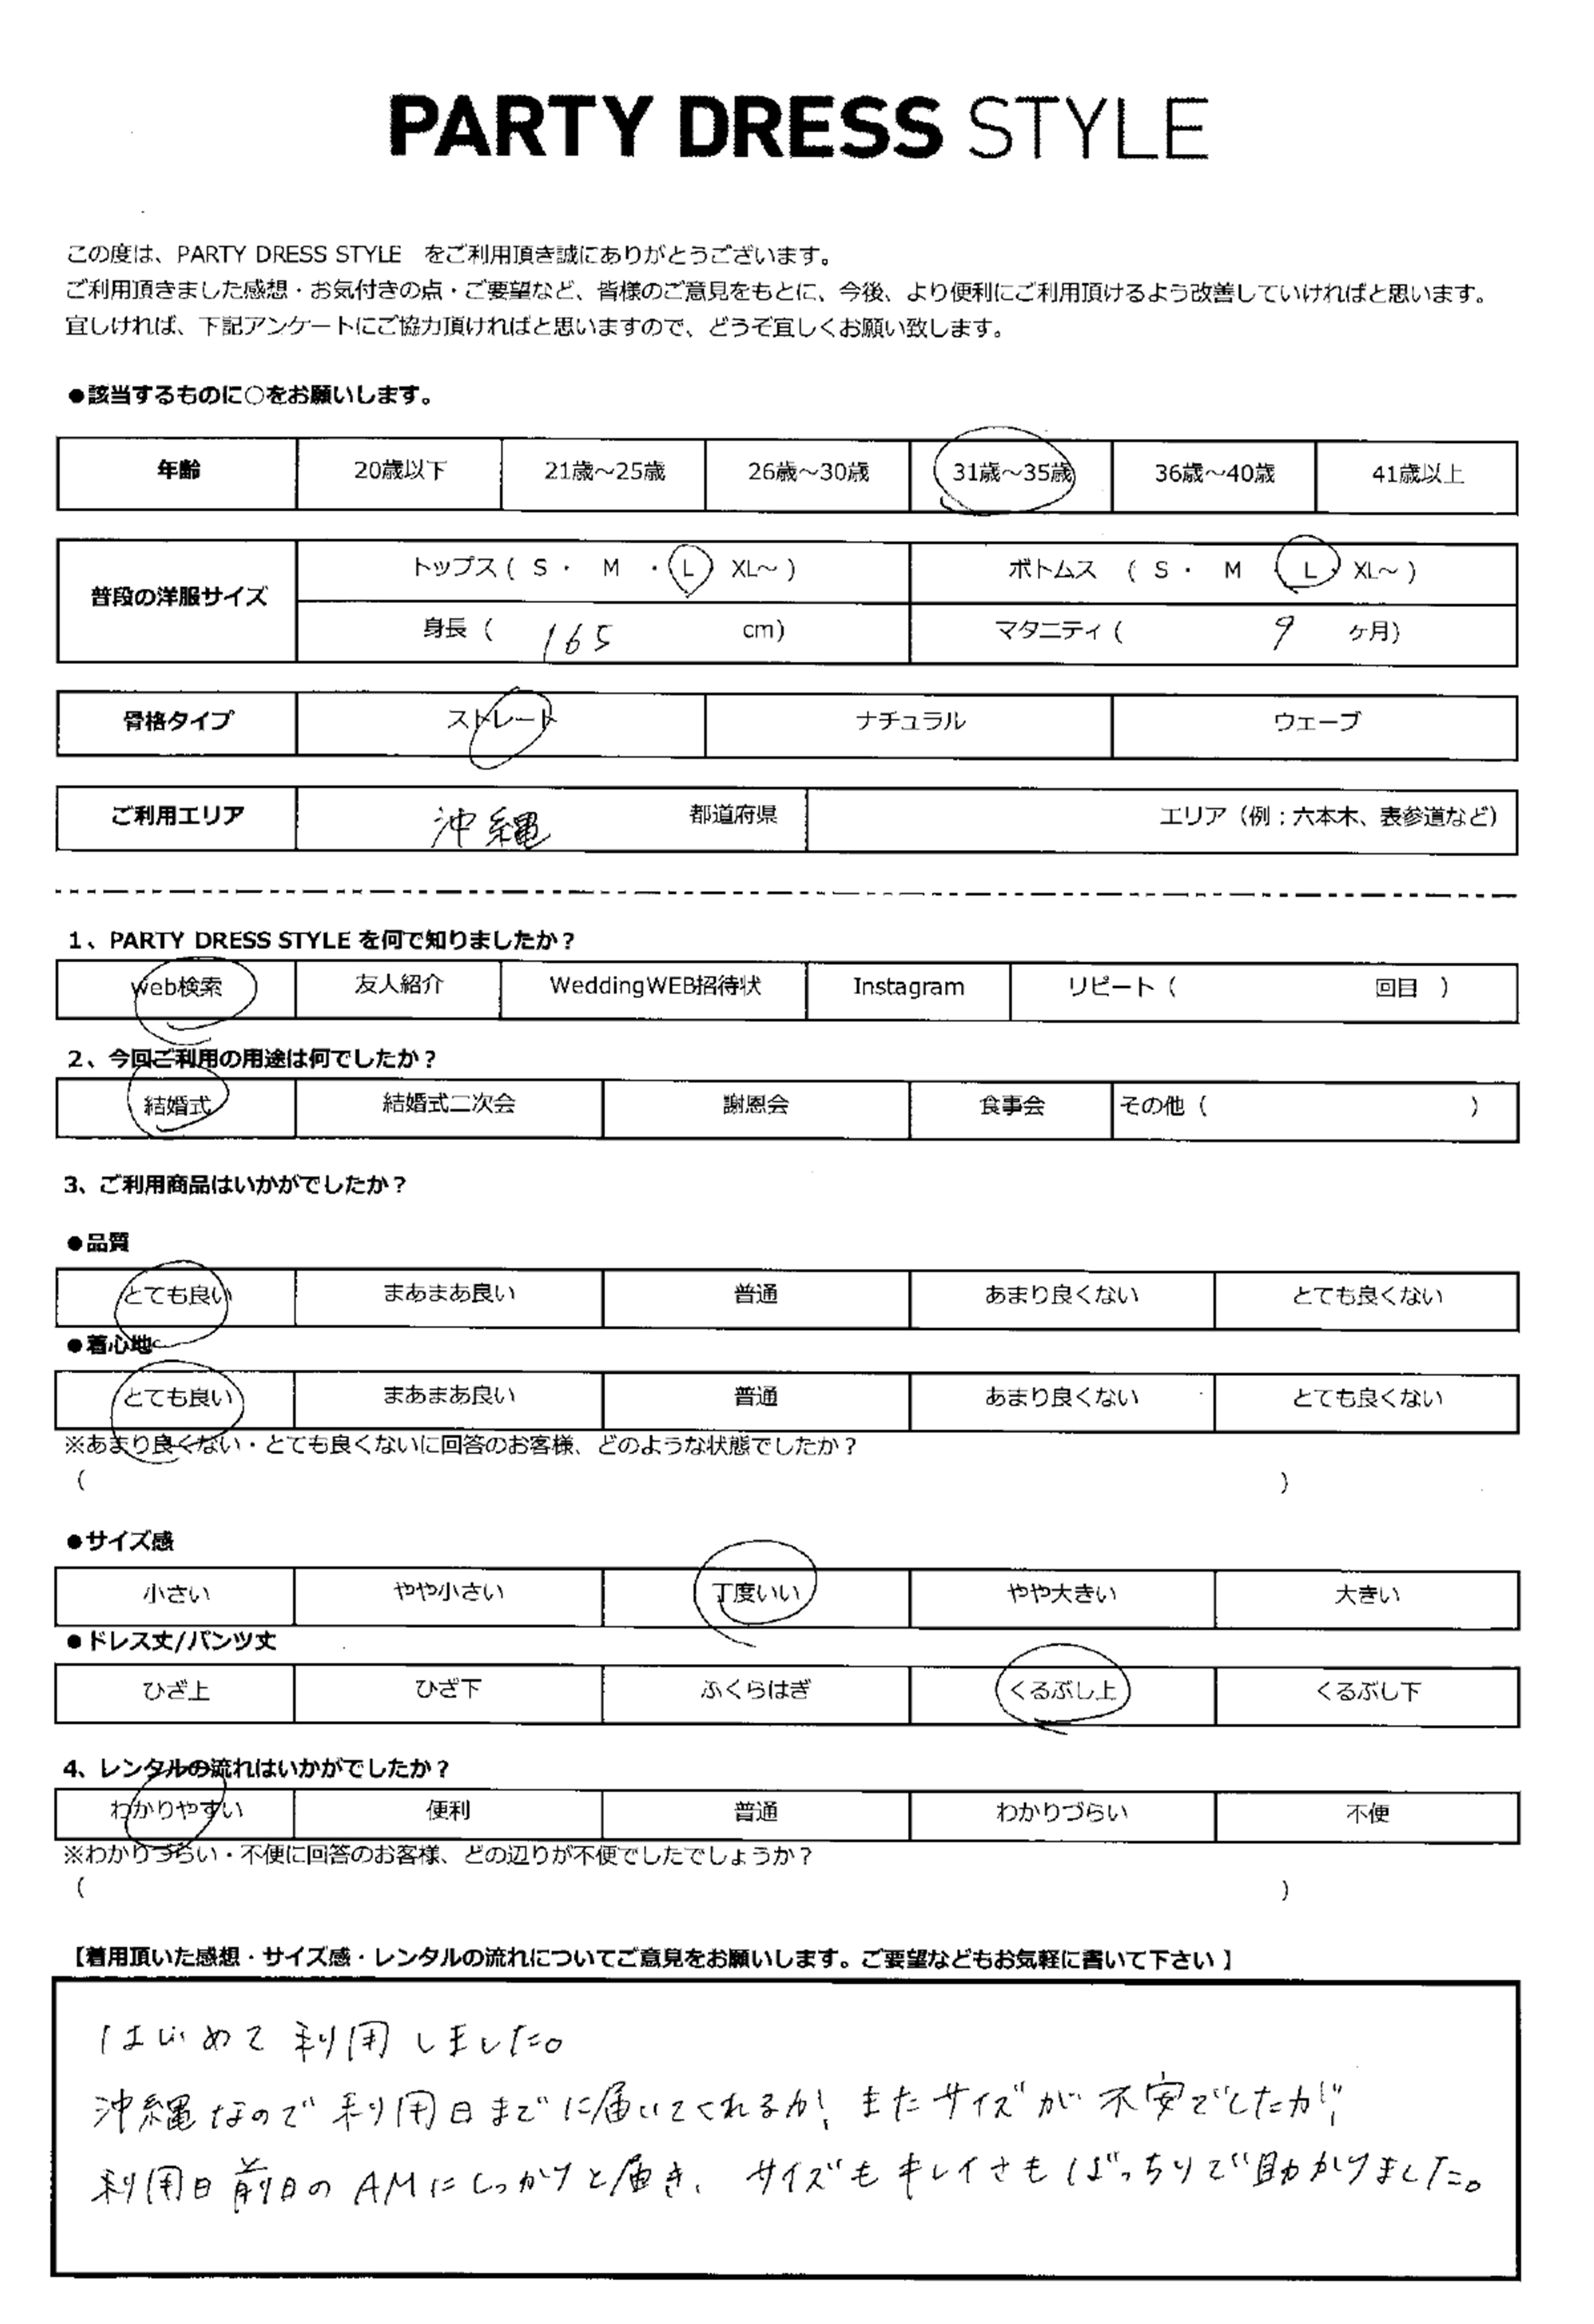 PARTY DRESS STYLE
この度は、PARTY DRESS STYLE　をご利用頂き誠にありがとうございます。
ご利用頂きました感想・お気付きの点・ご要望など、皆様のご意見をもとに、今後、より便利にご利用頂けるよう改善していければと思います。
宜しければ、下記アンケートにご協力頂ければと思いますので、どうぞ宜しくお願い致します。
●該当するものに○をお願いします。
年齢 20歳以下 21歳～25歳 26歳～30歳 31歳～35歳 36歳～40歳 41歳以上
普段の洋服サイズ トップス ( S ・ M ・ L XL～ ) ボトムス ( S ・ M ・ L ・ XL～ )
身長 ( 165 cm) マタニティ ( 9 ヶ月)
骨格タイプ ストレート ナチュラル ウェーブ
ご利用エリア 沖縄 都道府県 エリア（例：六本木、表参道など）
1、PARTY DRESS STYLE を何で知りましたか？
Web検索 友人紹介 WeddingWEB招待状 Instagram リピート（ 回目 ）
2、今回ご利用の用途は何でしたか？
結婚式 結婚式二次会 謝恩会 食事会 その他（ ）
3、ご利用商品はいかがでしたか？
●品質
とても良い まあまあ良い 普通 あまり良くない とても良くない
●着心地
とても良い まあまあ良い 普通 あまり良くない とても良くない
※あまり良くない・とても良くないに回答のお客様、どのような状態でしたか？
（ ）
●サイズ感
小さい やや小さい 丁度いい やや大きい 大きい
●ドレス丈/パンツ丈
ひざ上 ひざ下 ふくらはぎ くるぶし上 くるぶし下
4、レンタルの流れはいかがでしたか？
わかりやすい 便利 普通 わかりづらい 不便
※わかりづらい・不便に回答のお客様、どの辺りが不便でしたでしょうか？
（ ）
【着用頂いた感想・サイズ感・レンタルの流れについてご意見をお願いします。ご要望などもお気軽に書いて下さい 】
はじめて利用しました。
沖縄なので利用日までに届いてくれるか、またサイズが不安でしたが、
利用日前日のAMにしっかりと届き、サイズもキレイさもばっちりで助かりました。